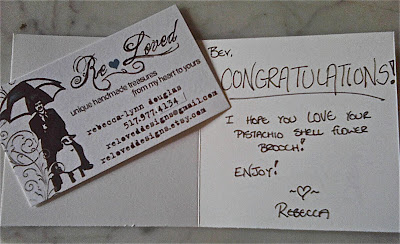 Re Loved
unique handmade treasures
from my heart to yours
rebecca-lynn douglas
517.977.4134
reloveddesigns@gmail.com
reloveddesigns.etsy.com
Bev,
CONGRATULATIONS!
I HOPE YOU LOVE YOUR
PISTACHIO SHELL FLOWER
BROOCH!
ENJOY!
~♡~
REBECCA